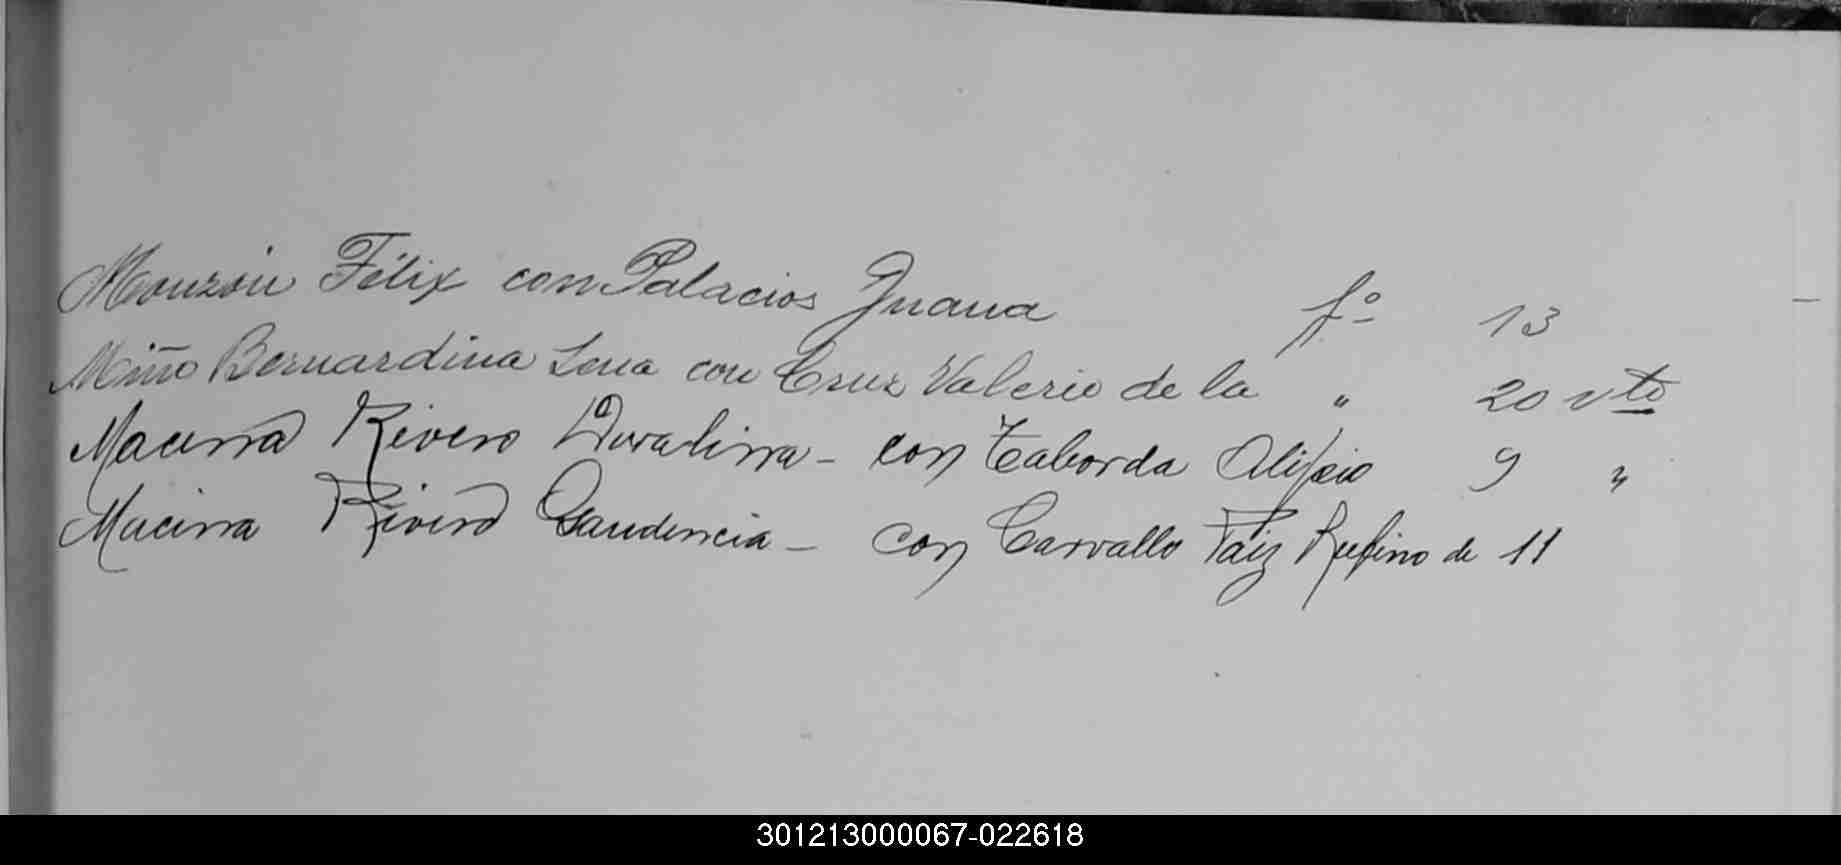 Monzón Félix con Palacios Juana fº 13
Miño Bernardina Lena con Cruz Valerio de la " 20 vto
Macina Rivero Duvalina - con Taborda Alipio 9 "
Macina Rivero Gaudencia - con Carvallo Paiz Rufino de 11
301213000067-022618